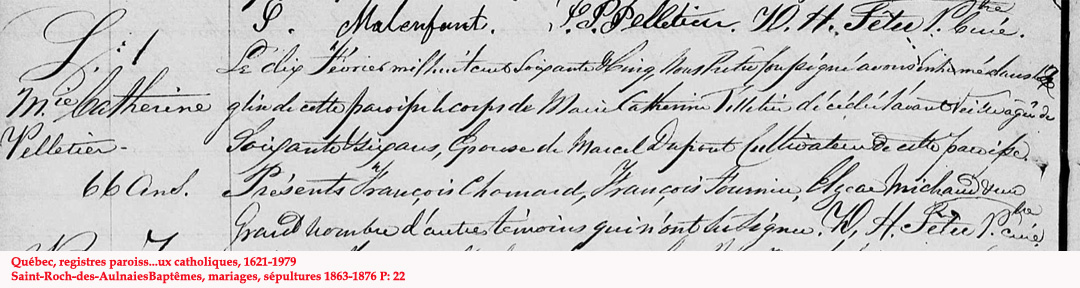 P. Malenfant. J. P. Pelletier. D. H. Têtu Ptre Curé.
S. 4
Le dix Février mil huit cent soixante & cinq, Nous Prêtre soussigné avons inhumé dans l'E
Mie Catherine
glise de cette paroisse le corps de Marie Catherine Pelletier décédée l'avant veille agée de
Pelletier.
Soixante & six ans, Epouse de Marcel Dupont Cultivateur de cette paroisse.
66 Ans.
Présents François Chouinard, François Fournier, Elyear Michaud & un
Grand nombre d'autres témoins qui n'ont su signer. D. H. Têtu Ptre Curé
Québec, registres paroiss...ux catholiques, 1621-1979
Saint-Roch-des-AulnaiesBaptêmes, mariages, sépultures 1863-1876 P: 22